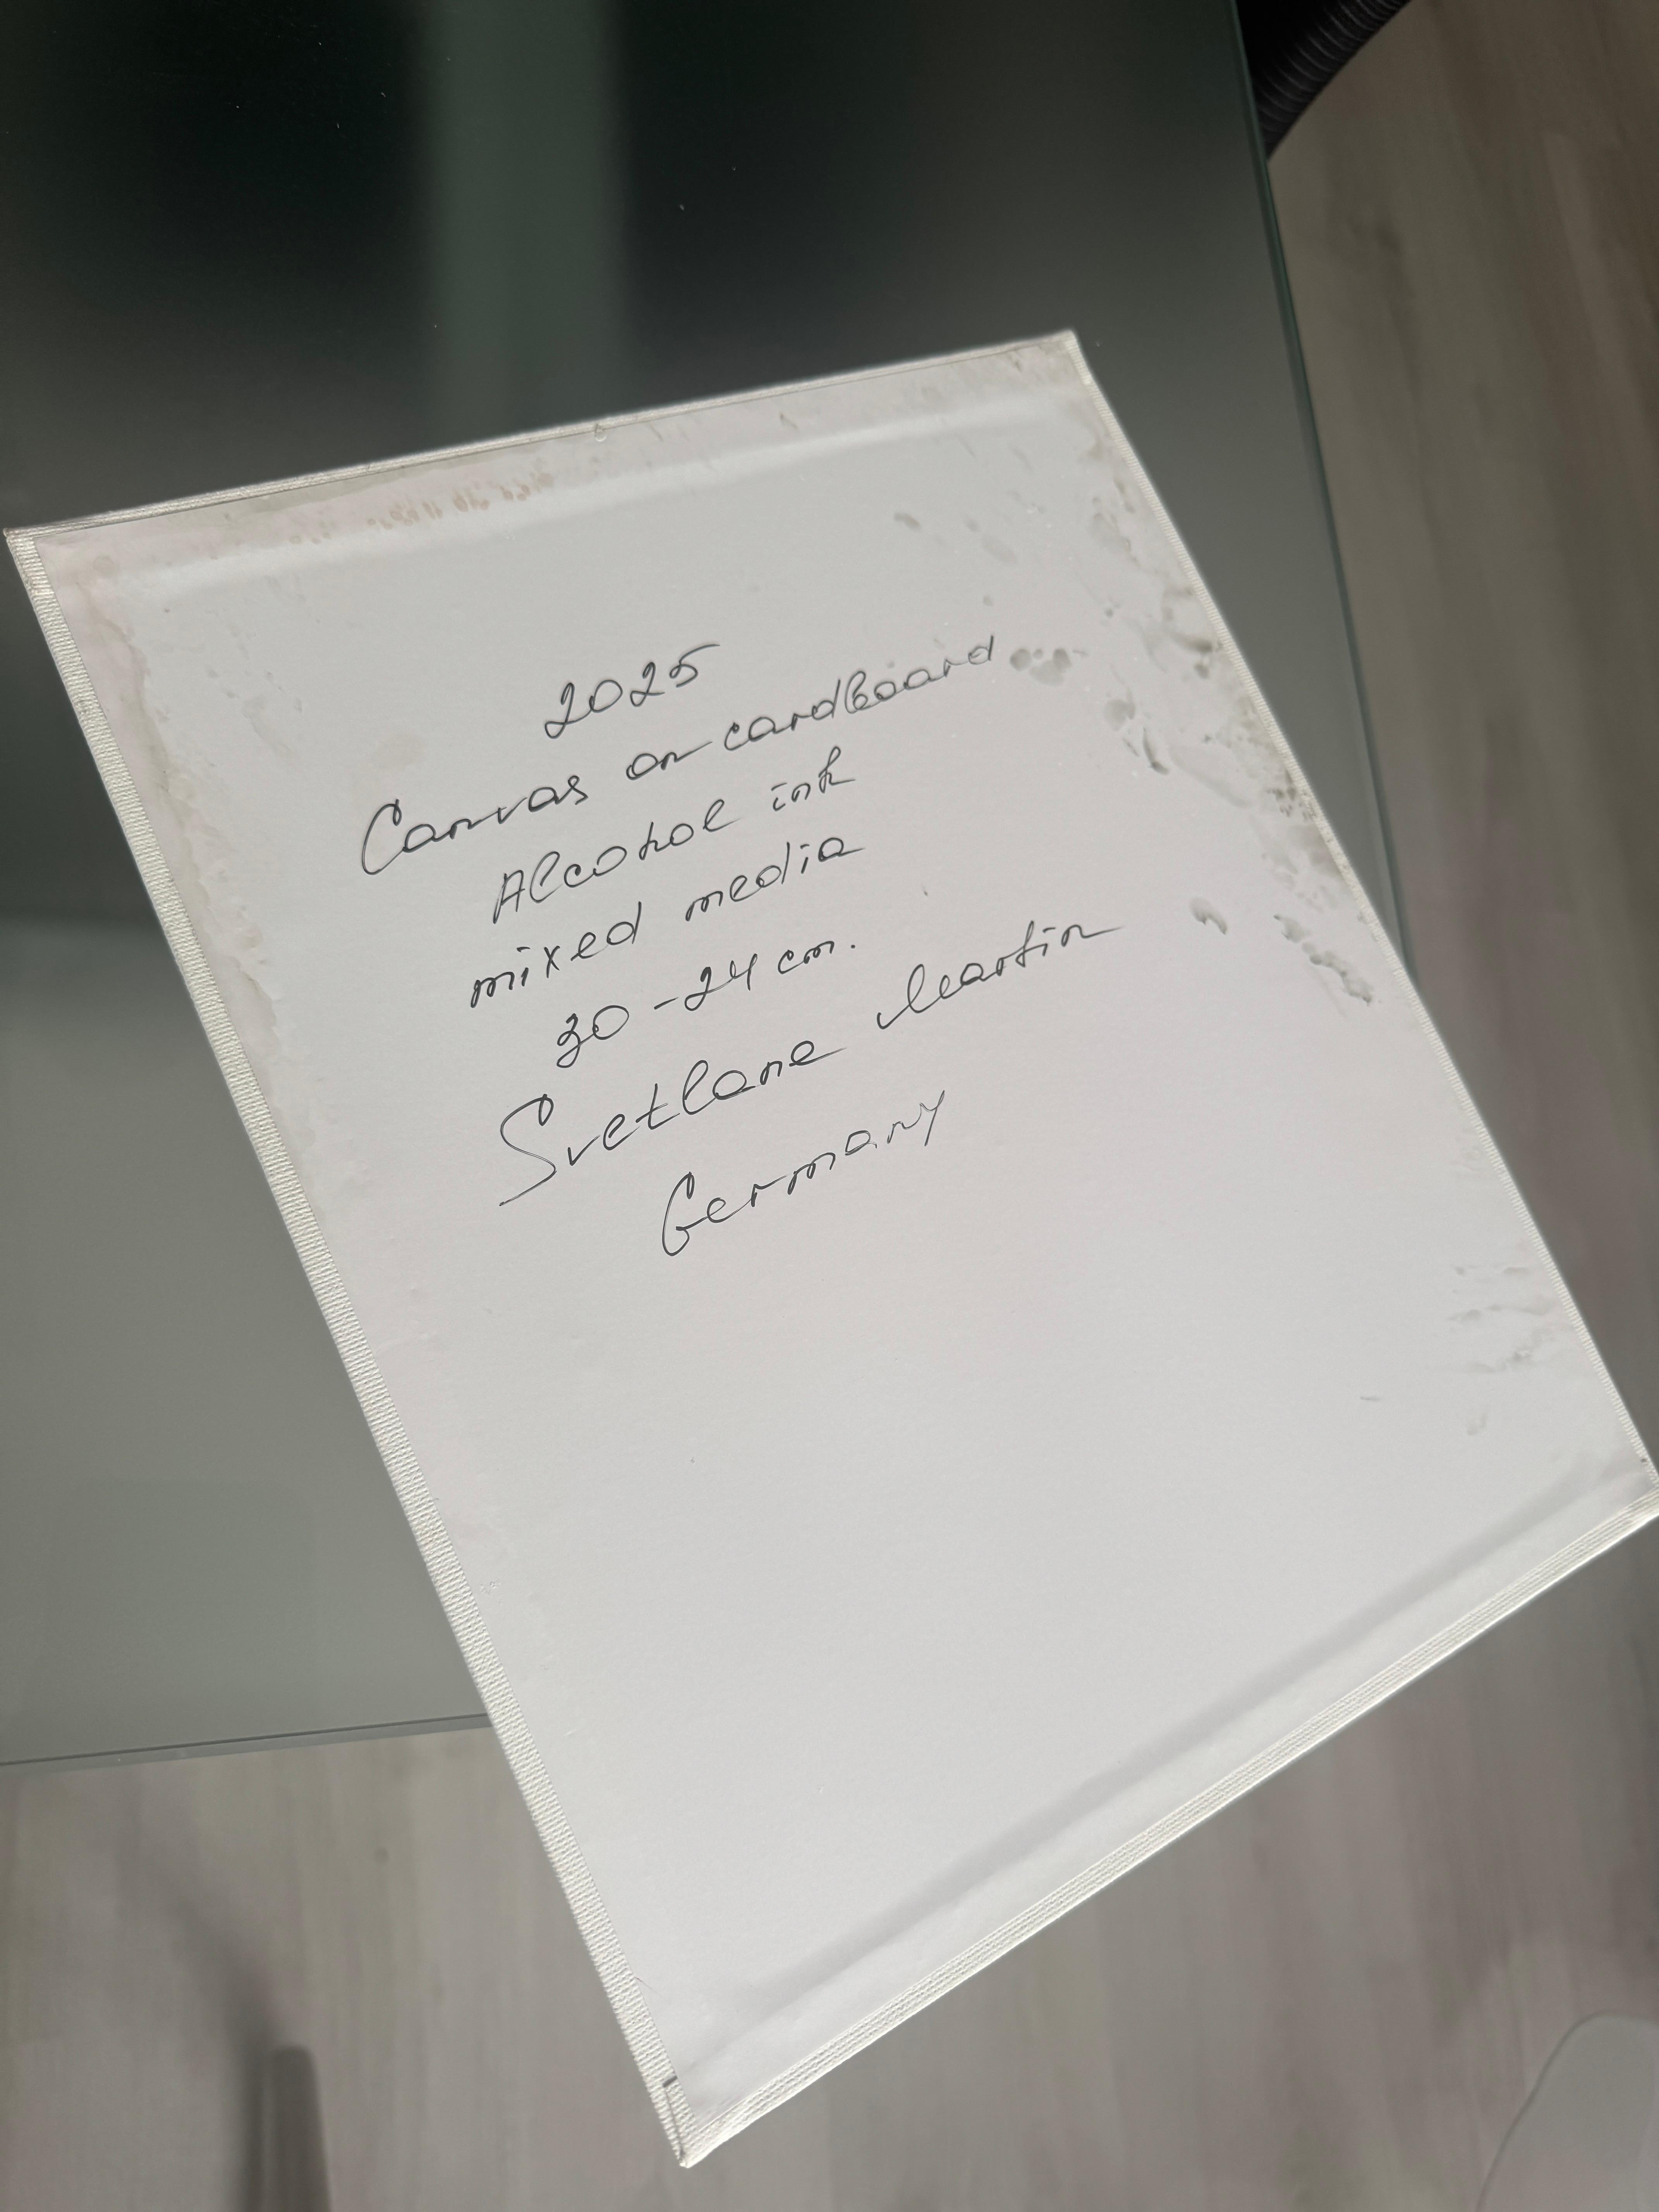 2025
Canvas on cardboard
Alcohol ink
mixed media
30-24 cm.
Svetlane Martin
Germany